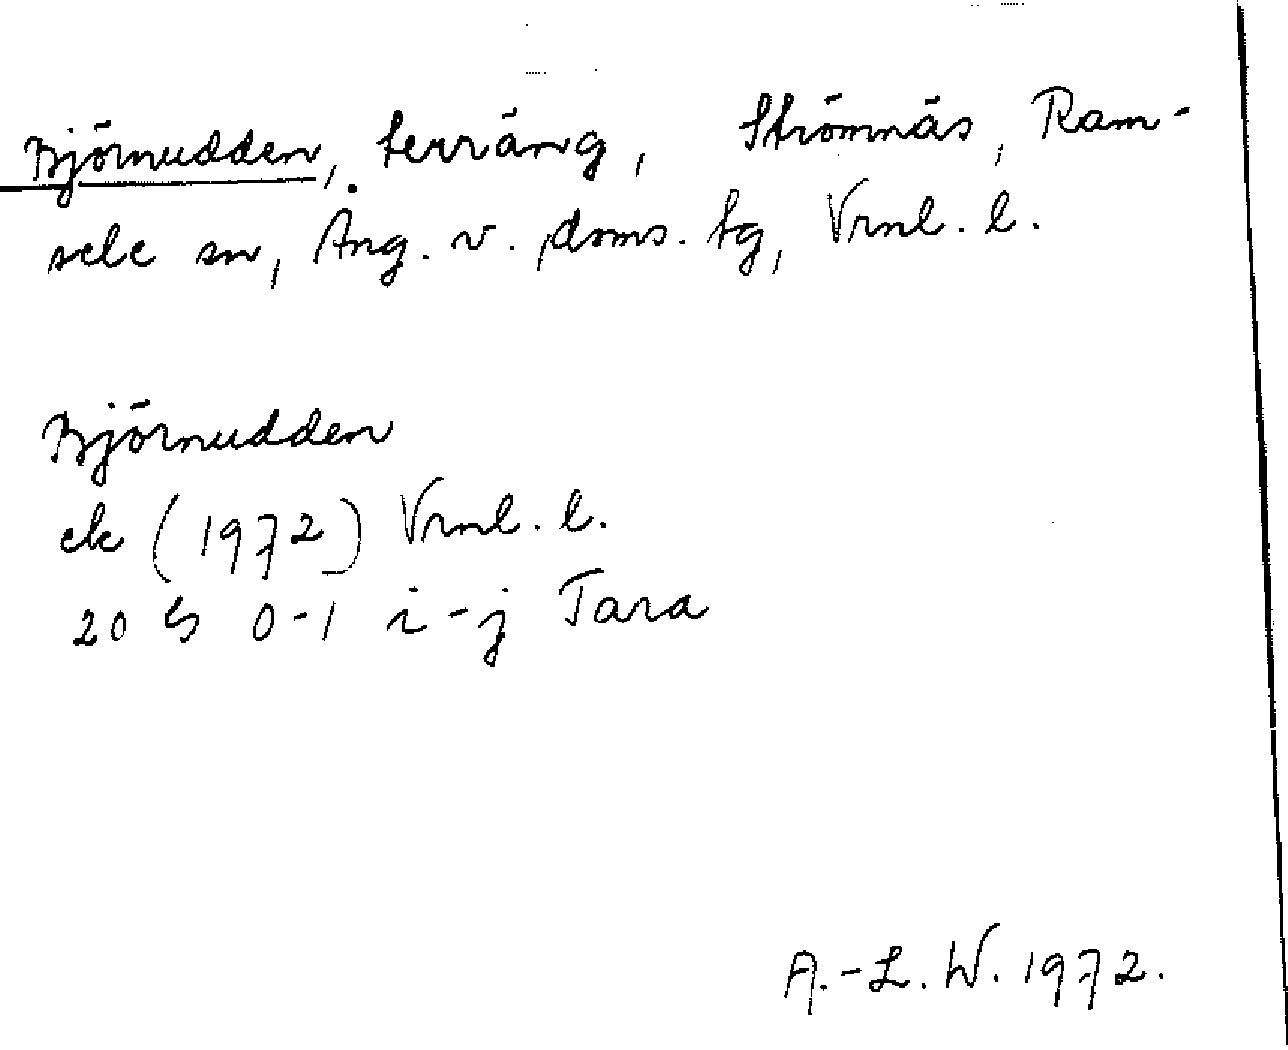 Björnudden, terräng, Strömnäs, Ram-
sele sn, Ång. v. doms. tg, Vrnl. l.
Björnudden
ek (1972) Vrnl. l.
20 G 0-1 i-j Tara
A.-L. W. 1972.